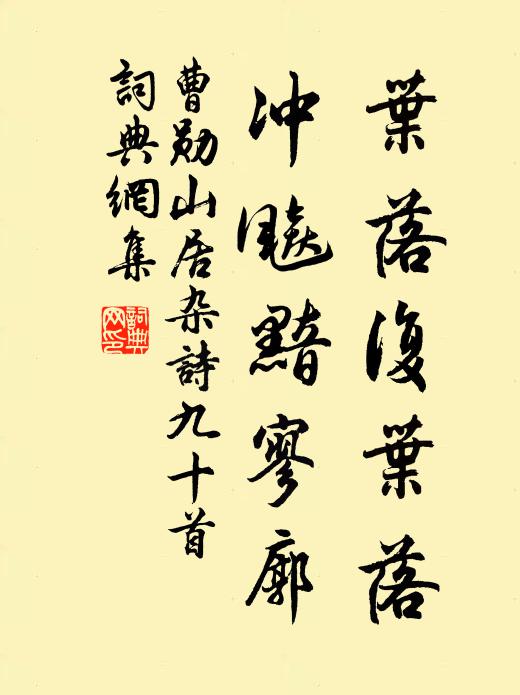 葉落復葉落
冲飈黯寥廓
曹勛山居杂詩九十首
詞典網集
詞典網印